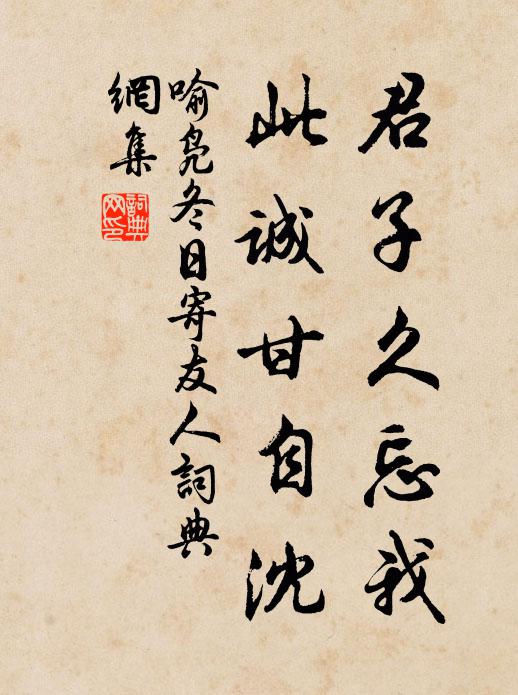 君子久忘我
此誠甘自沈
喻凫冬日寄友人詞典
網集
詞典
网印